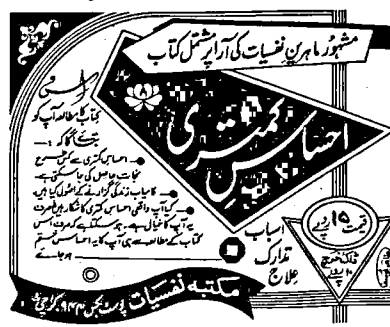 مشہور ماہرینِ نفسیات کی آرا پر مشتمل کتاب
احساسِ کمتری
اس
کتاب کا مطالعہ آپ کو
بتائے گا کہ :—
● احساسِ کمتری سے کس طرح
نجات حاصل کی جا سکتی ہے
● کامیاب زندگی گزارنے کے اصول کیا ہیں
● کیا آپ واقعی احساسِ کمتری کا شکار ہیں یا صرف
یہ آپ کا خیال ہے۔ ہو سکتا ہے کہ صرف اس
کتاب کے مطالعہ سے ہی آپ کا یہ احساس ختم
ہو جائے
اسباب
تدارک
علاج
قیمت ۱۵ روپے
ڈاک خرچ
۱۰ روپے
مکتبہ نفسیات پوسٹ بکس ۹۴۴ کراچی